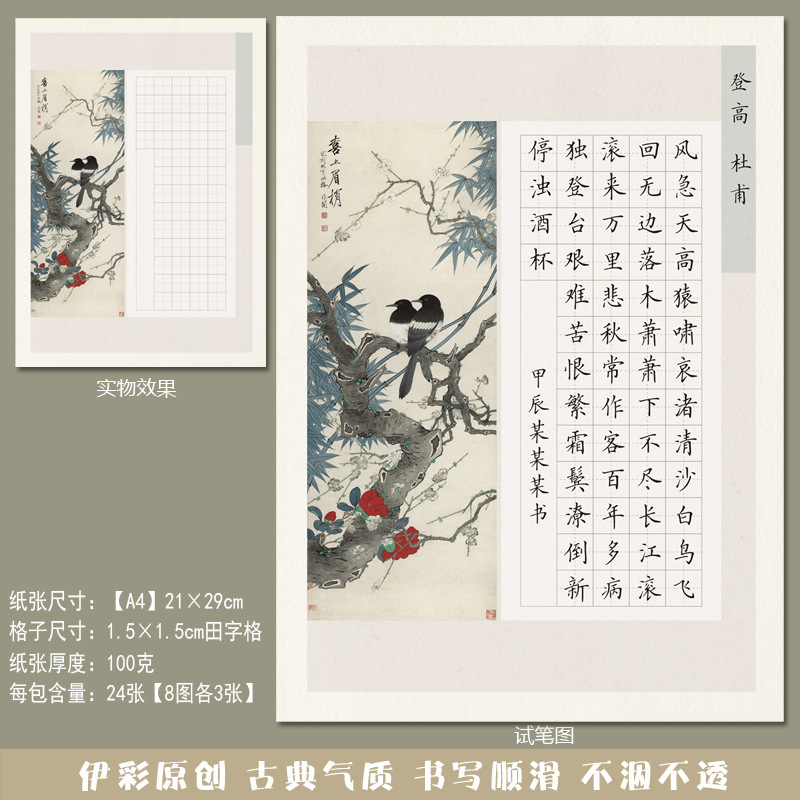 喜上眉梢
实物效果
登高 杜甫
风急天高猿啸哀渚清沙白鸟飞
回无边落木萧萧下不尽长江滚
滚来万里悲秋常作客百年多病
独登台艰难苦恨繁霜鬓潦倒新
停浊酒杯
甲辰某某某书
喜上眉梢
试笔图
纸张尺寸：【A4】21×29cm
格子尺寸：1.5×1.5cm田字格
纸张厚度：100克
每包含量：24张【8图各3张】
伊彩原创 古典气质 书写顺滑 不洇不透